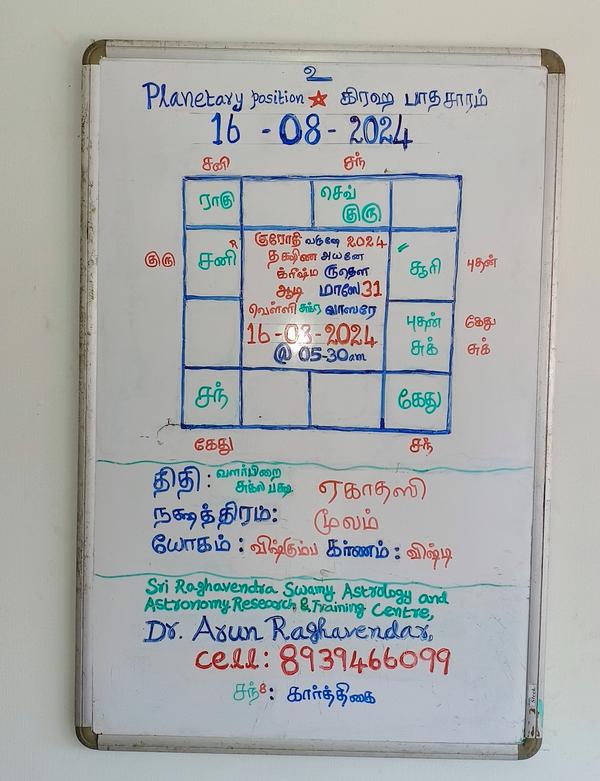 உ
Planetary position கிரஹ பாதசாரம்
16 - 08 - 2024
சனி சந்
ராகு செவ்
குரு
குரு சனி R சூரி புதன்
குரோதி வருஷ 2024
தக்ஷிண அயனே
க்ரீஷ்ம ருதௌ
ஆடி மாஸே 31
வெள்ளி சுக்ர வாஸரே
16-08-2024
@ 05-30am
புதன் கேது
சுக் சுக்
சந் கேது
கேது சந்
திதி : வளர்பிறை
சுக்ல பக்ஷ ஏகாதஸி
நக்ஷத்திரம்: மூலம்
யோகம் : விஷ்கும்ப கர்ணம் : விஷ்டி
Sri Raghavendra Swamy Astrology and
Astronomy Research & Training Centre,
Dr. Arun Raghavendar,
cell: 8939466099
சந் 8: கார்த்திகை